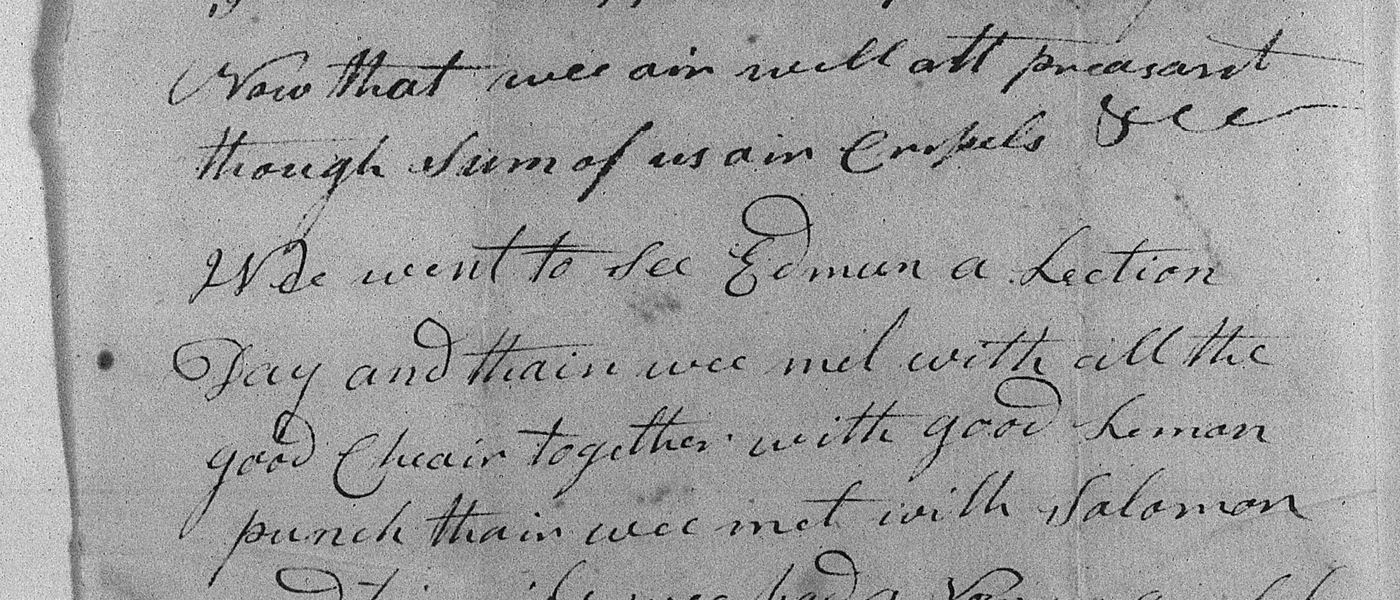 Now that wee air well att preasant
though Sum of us air Cripels &c c
Wee went to See Edmun a Lection
Day and thair wee met with all the
good Cheair together with good Leman
punch thair wee met with Salomon
wee had a